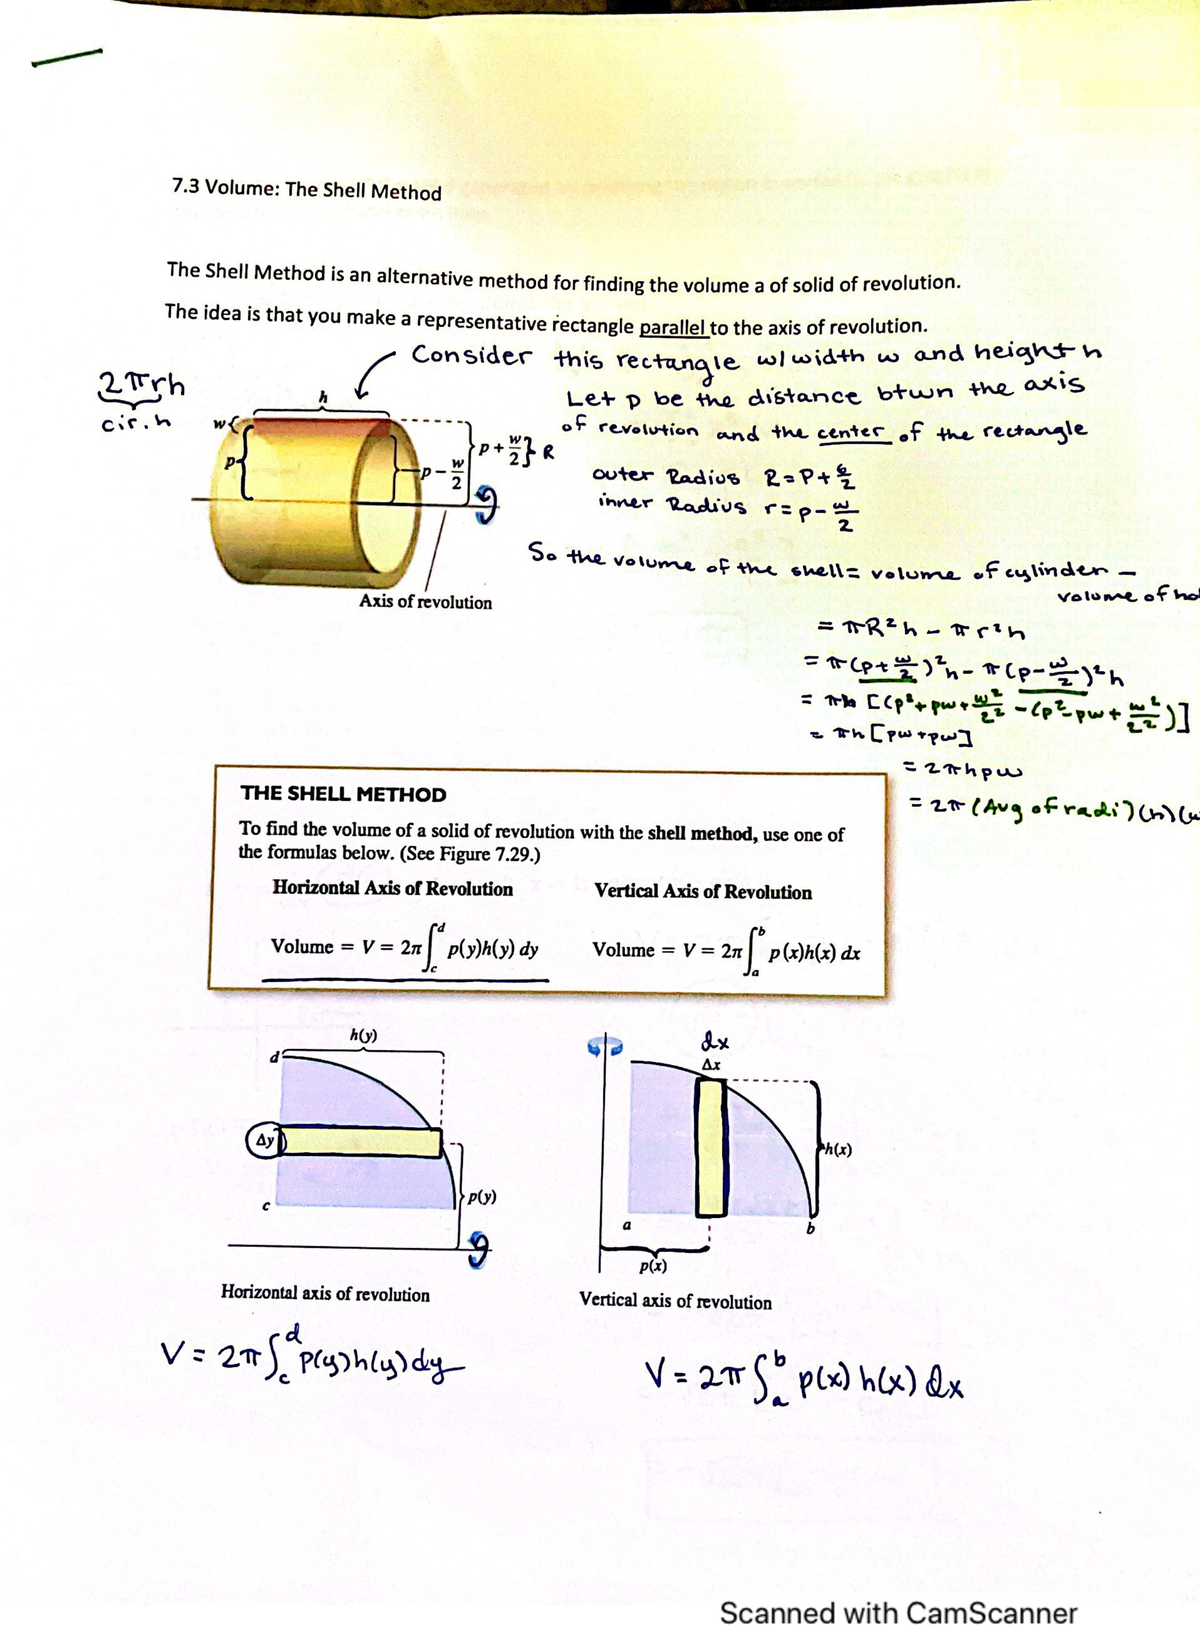 7.3 Volume: The Shell Method
The Shell Method is an alternative method for finding the volume a of solid of revolution.
The idea is that you make a representative rectangle parallel to the axis of revolution.
Consider this rectangle w/ width w and height h
Let p be the distance btwn the axis
of revolution and the center of the rectangle
2πrh
cir.h
h
w{
p{
p + w/2 } R
p - w/2
Axis of revolution
outer Radius R = P + w/2
inner Radius r = p - w/2
So the volume of the shell = volume of cylinder -
volume of
= πR²h - πr²h
= π(p+w/2)²h - π(p-w/2)²h
= πh [(p²+pw+w²/2² - (p²-pw+w²/2²)]
= πh [pw+pw]
= 2πhpw
= 2π (Avg of radi)(h)(
THE SHELL METHOD
To find the volume of a solid of revolution with the shell method, use one of
the formulas below. (See Figure 7.29.)
Horizontal Axis of Revolution Vertical Axis of Revolution
Volume = V = 2π∫_c^d p(y)h(y) dy Volume = V = 2π∫_a^b p(x)h(x) dx
h(y)
d
Δy
c
p(y)
Horizontal axis of revolution
dx
Δx
h(x)
a
b
p(x)
Vertical axis of revolution
V = 2π∫_c^d p(y)h(y)dy
V = 2π∫_a^b p(x) h(x) dx
Scanned with CamScanner